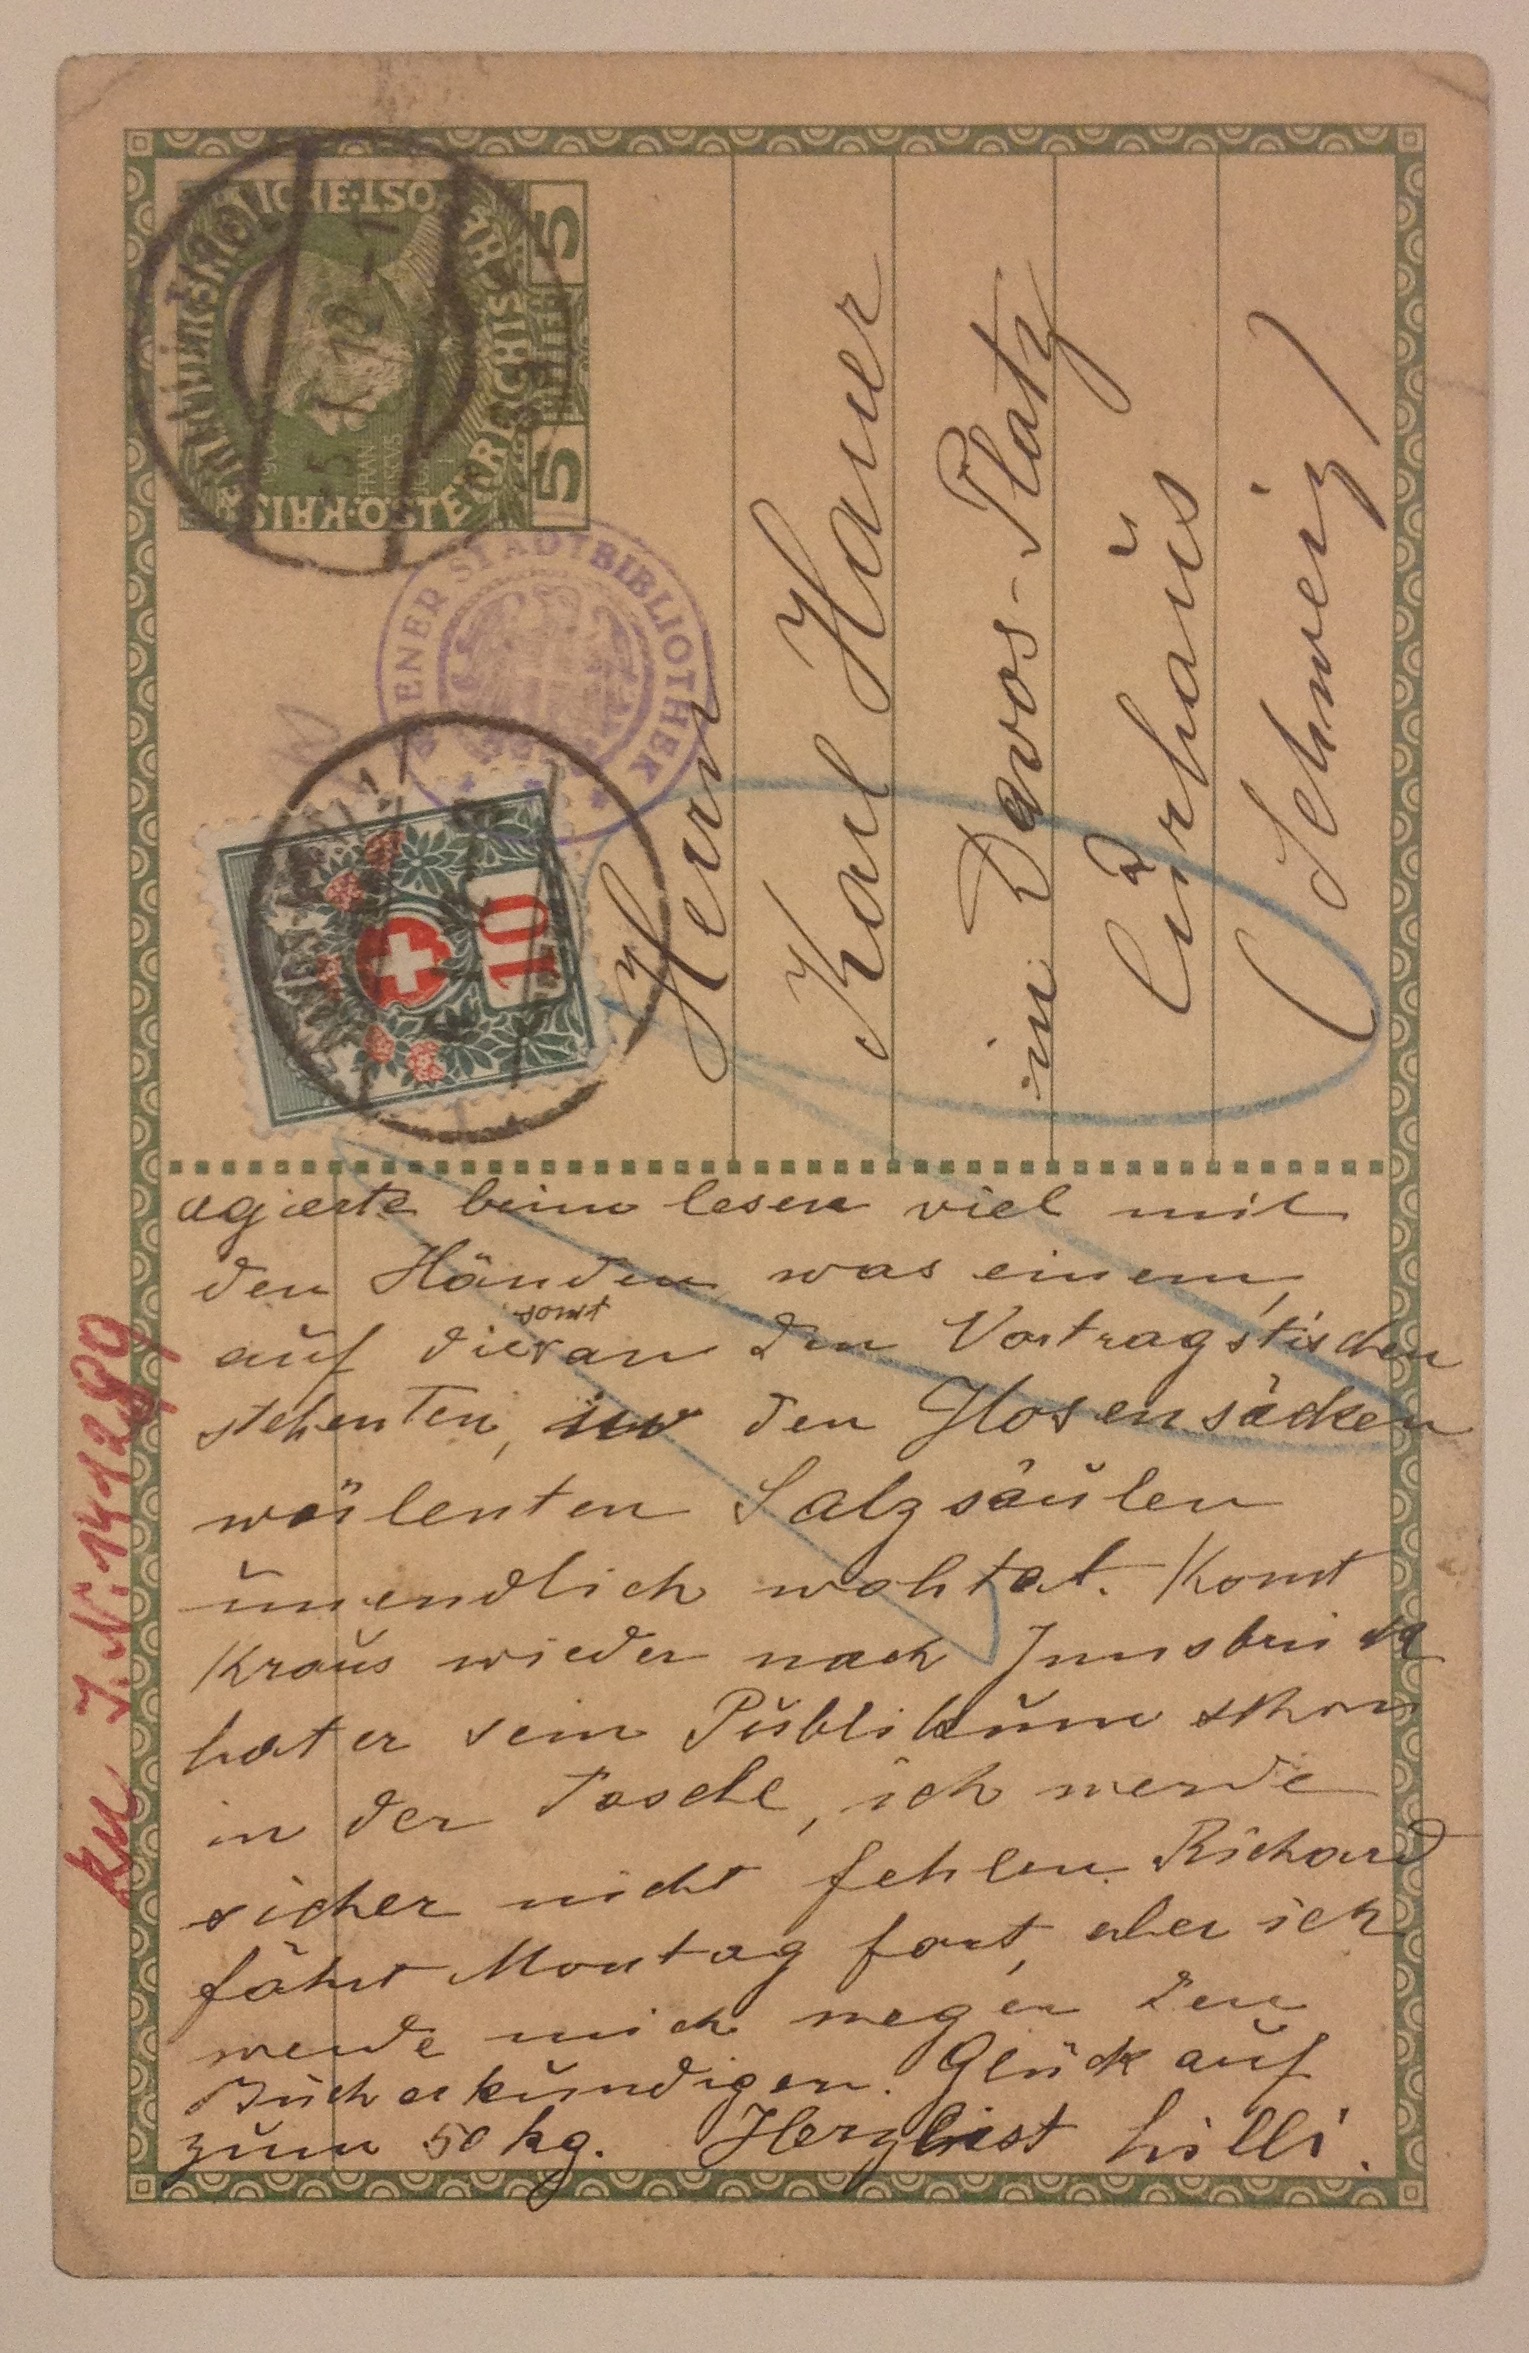 5
HELLER
5
FRAN
CISCVS
10
WIENER STADTBIBLIOTHEK
Herrn
Karl Hauer
in Davos-Platz
Curhaus
(Schweiz)
agierte beim lesen viel mit
den Händen, was einem,
auf die sonst an den Vortragstischen
stehenten, in den Hosensäcken
wülenten Salzsäulen
unendlich wohltat. Komt
Kraus wieder nach Innsbruck
hat er sein Publikum schon
in der Tasche, ich werde
sicher nicht fehlen. Richard
fährt Montag fort, aber ich
werde mich wegen den
Büch erkundigen. Glück auf
zum 50 kg. Herzlist hilli.
I. N. 141289